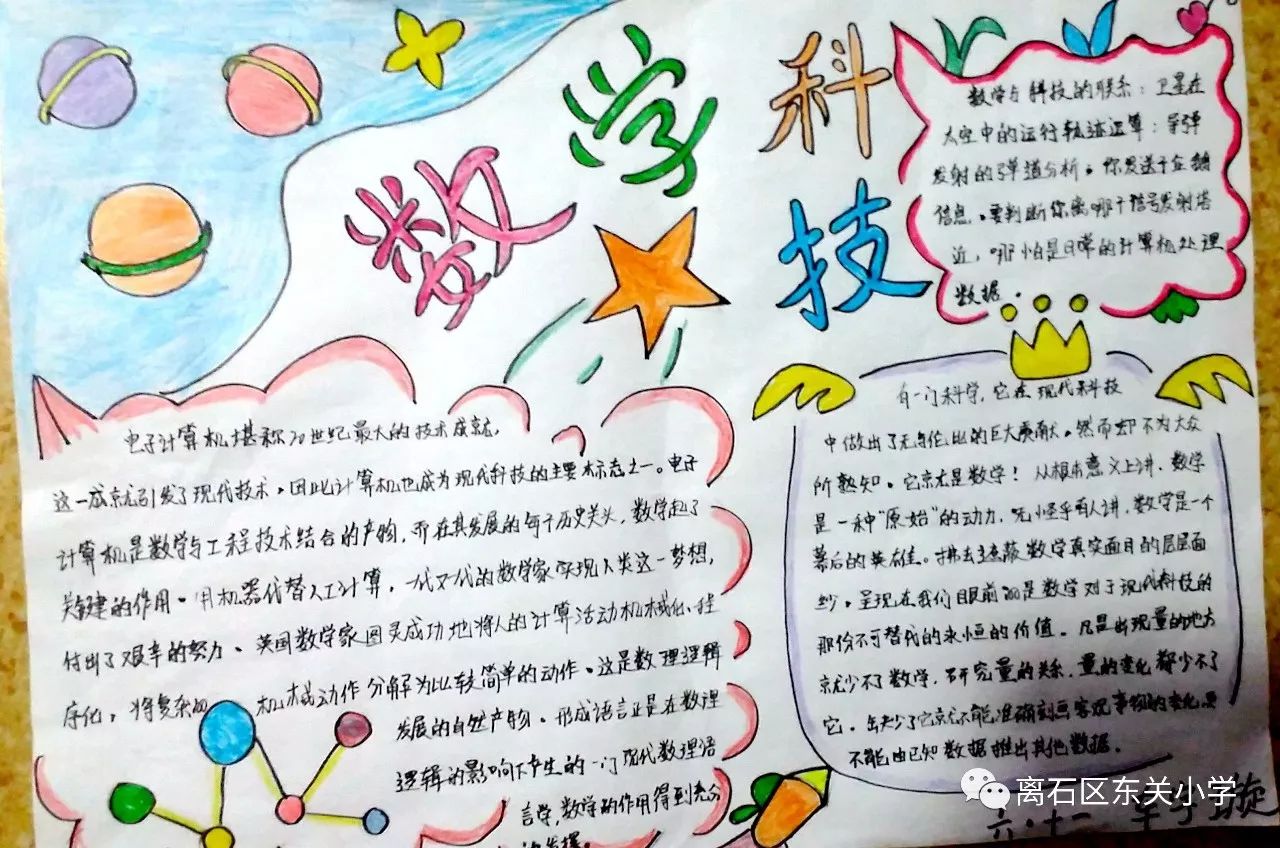 数学
科技
数学与科技的联系：卫星在
太空中的运行轨迹运算；导弹
发射的弹道分析。你发送个企鹅
信息。要判断你离哪个信号发射塔
近，哪怕是日常的计算机处理
数据。
电子计算机堪称20世纪最大的技术成就，
这一成就引发了现代技术。因此计算机也成为现代科技的主要标志之一。电子
计算机是数学与工程技术结合的产物，而在其发展的每个历史关头，数学起了
关键的作用。用机器代替人工计算，一代又一代的数学家实现人类这一梦想，
付出了艰辛的努力。英国数学家图灵成功地将人的计算活动机械化、程
序化，将复杂的机械动作分解为比较简单的动作。这是数理逻辑
发展的自然产物。形成语言正是在数理
逻辑的影响下产生的一门现代数理语
言学，数学的作用得到充分
的发挥。
有一门科学，它在现代科技
中做出了无与伦比的巨大贡献。然而却不为大众
所熟知。它就是数学！从根本意义上讲，数学
是一种"原始"的动力，无怪乎有人讲，数学是一个
幕后的英雄。拂去遮蔽数学真实面目的层层面
纱。呈现在我们眼前的是数学对于现代科技的
那份不可替代的永恒的价值。凡是出现量的地方
就少不了数学，研究量的关系，量的变化都少不了
它。缺少了它就不能准确刻画客观事物的变化更
不能由已知数据推出其他数据。
离石区东关小学
六·十一 子璇